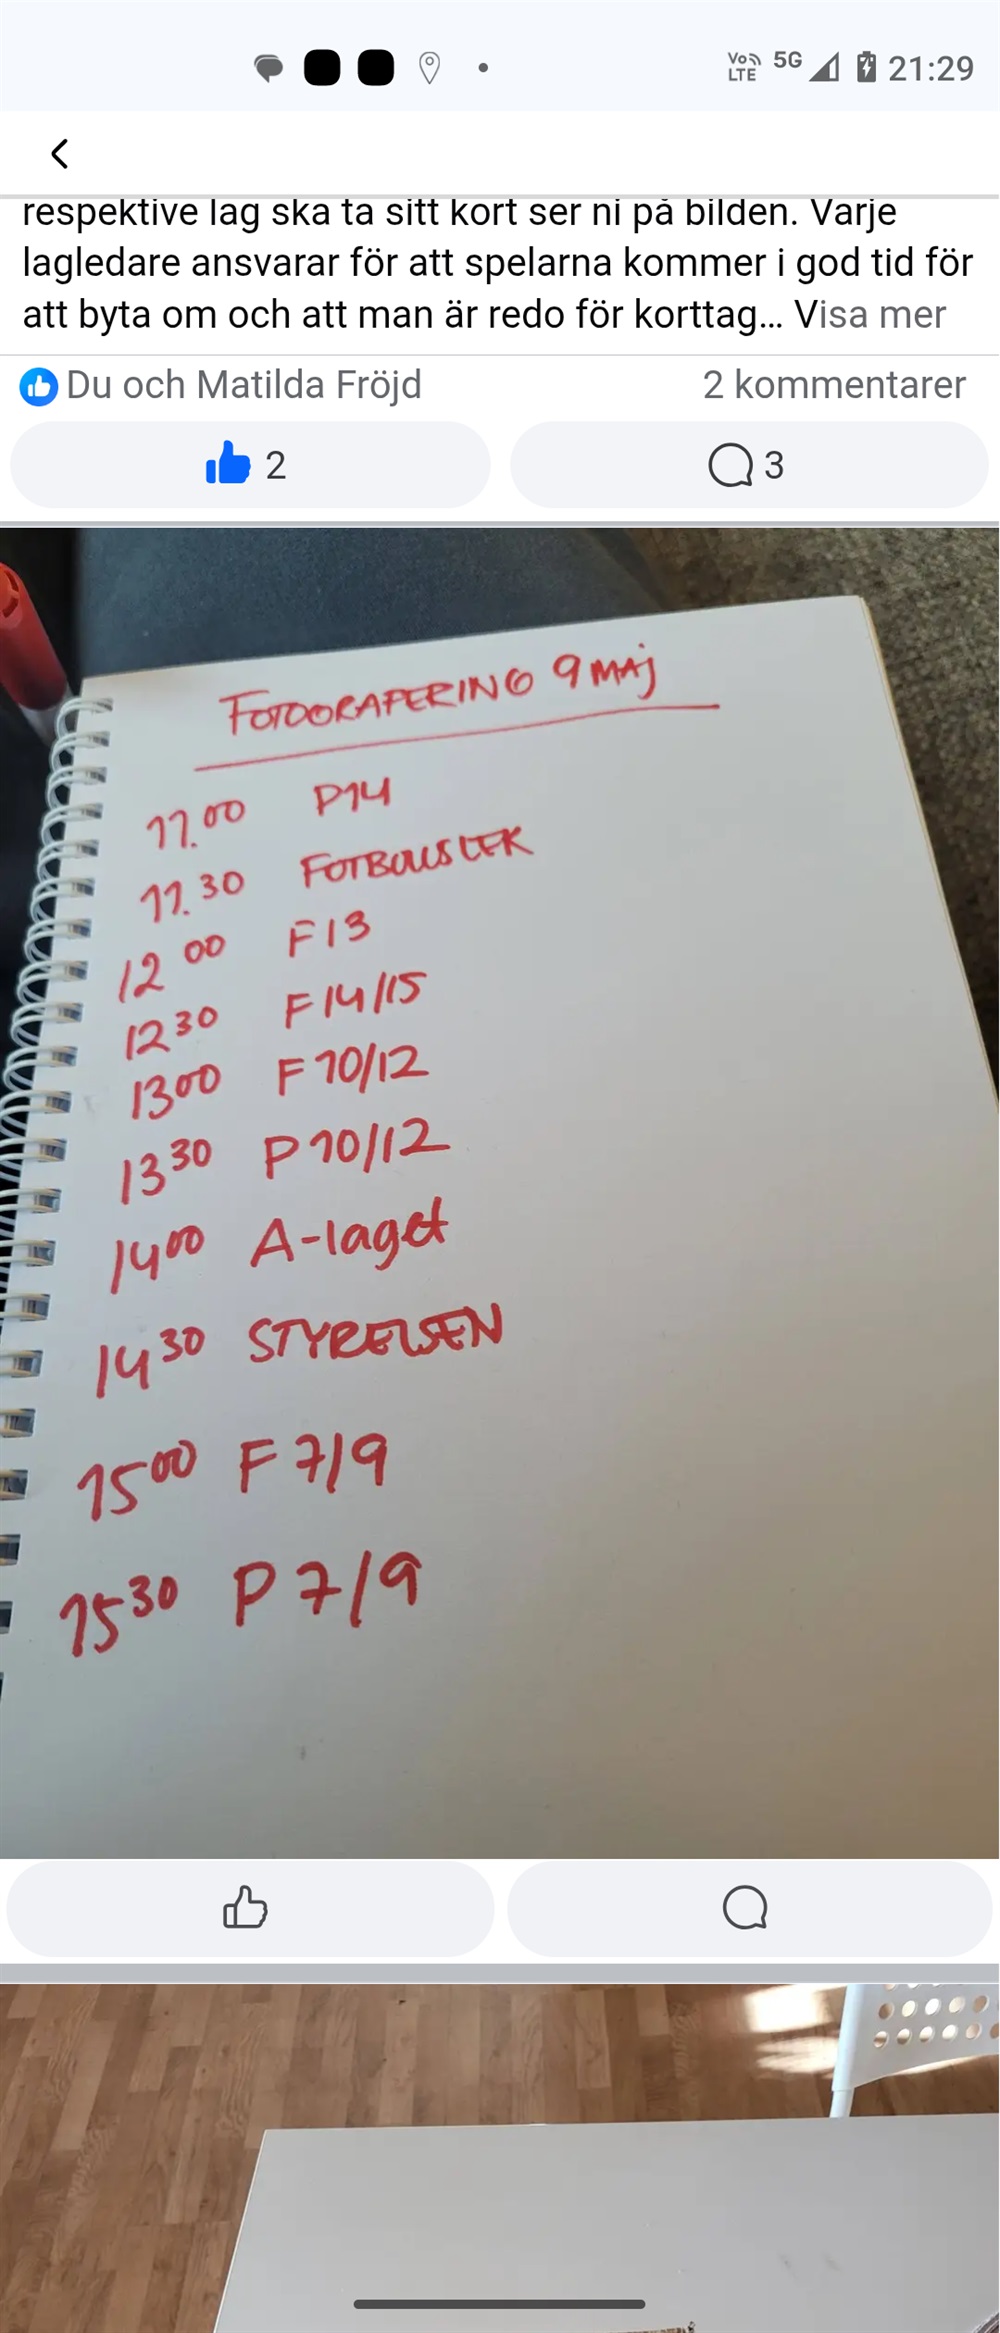 VoLTE 5G 21:29
respektive lag ska ta sitt kort ser ni på bilden. Varje
lagledare ansvarar för att spelarna kommer i god tid för
att byta om och att man är redo för korttag... Visa mer
Du och Matilda Fröjd 2 kommentarer
2 3
FOTOGRAFERING 9 MAJ
11.00 P14
11.30 FOTBOLLSLEK
12 00 F13
12 30 F14/15
13 00 F10/12
13 30 P10/12
14 00 A-laget
14 30 STYRELSEN
15 00 F7/9
15 30 P7/9